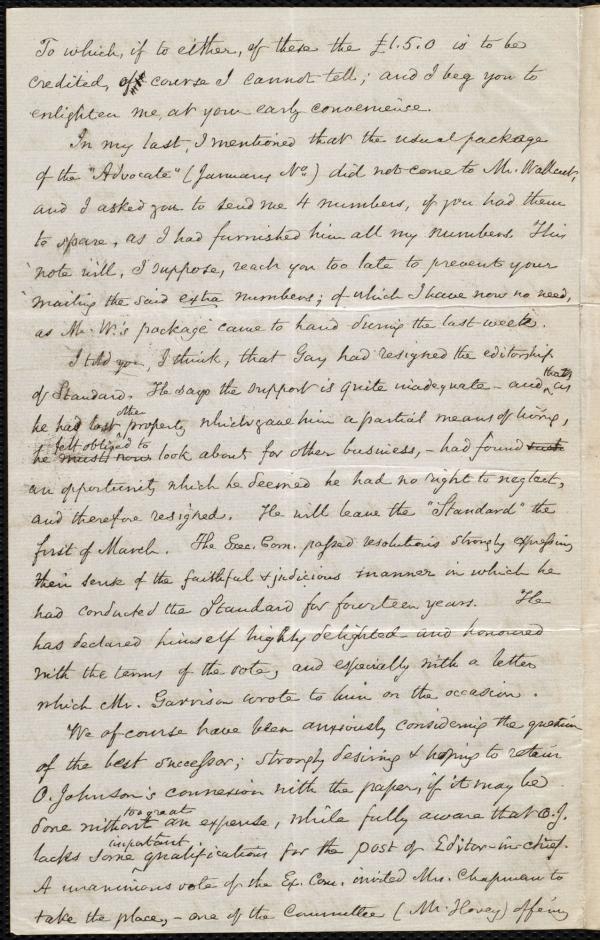 To which, if to either, of these the £1.5.0 is to be
credited, of course I cannot tell; and I beg you to
enlighten me, at your early convenience.
In my last, I mentioned that the usual package
of the "Advocate" (January No.) did not come to Mr. Wallcut,
and I asked you to send me 4 numbers, if you had them
to spare, as I had furnished him all my numbers. This
note will, I suppose, reach you too late to prevent your
mailing the said extra numbers; of which I have now no need,
as Mr. W.'s package came to hand during the last week.
I told you, I think, that Gay had resigned the editorship
of Standard. He says the support is quite inadequate – and that, as
he had lost other property which gave him a partial means of living,
he felt obliged to must now look about for other business, – had found such
an opportunity which he deemed he had no right to neglect,
and therefore resigned. He will leave the "Standard" the
first of March. The Exec. Com. passed resolutions strongly expressing
their sense of the faithful & judicious manner in which he
had conducted the Standard for fourteen years. He
has declared himself highly delighted and honoured
with the terms of the vote, and especially with a letter
which Mr. Garrison wrote to him on the occasion.
We of course have been anxiously considering the question
of the best successor; strongly desiring & hoping to retain
O. Johnson's connexion with the paper, if it may be
done without too great an expense, while fully aware that O.J.
lacks some important qualifications for the post of Editor-in-chief.
A unanimous vote of the Ex. Com. invited Mrs. Chapman to
take the place, – one of the Committee (Mr. Hovey) offering